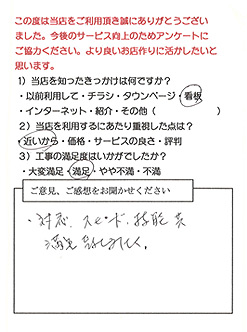 この度は当店をご利用頂き誠にありがとうござい
ました。今後のサービス向上のためアンケートに
ご協力ください。より良いお店作りに活かしたいと
思います。
1）当店を知ったきっかけは何ですか?
・以前利用して・チラシ・タウンページ・看板
・インターネット・紹介・その他（　　　　）
2）当店を利用するにあたり重視した点は?
・近いから・価格・サービスの良さ・評判
3）工事の満足度はいかがでしたか?
・大変満足・満足・やや不満・不満
ご意見、ご感想をお聞かせください
・対応、スピード、技能共
満足